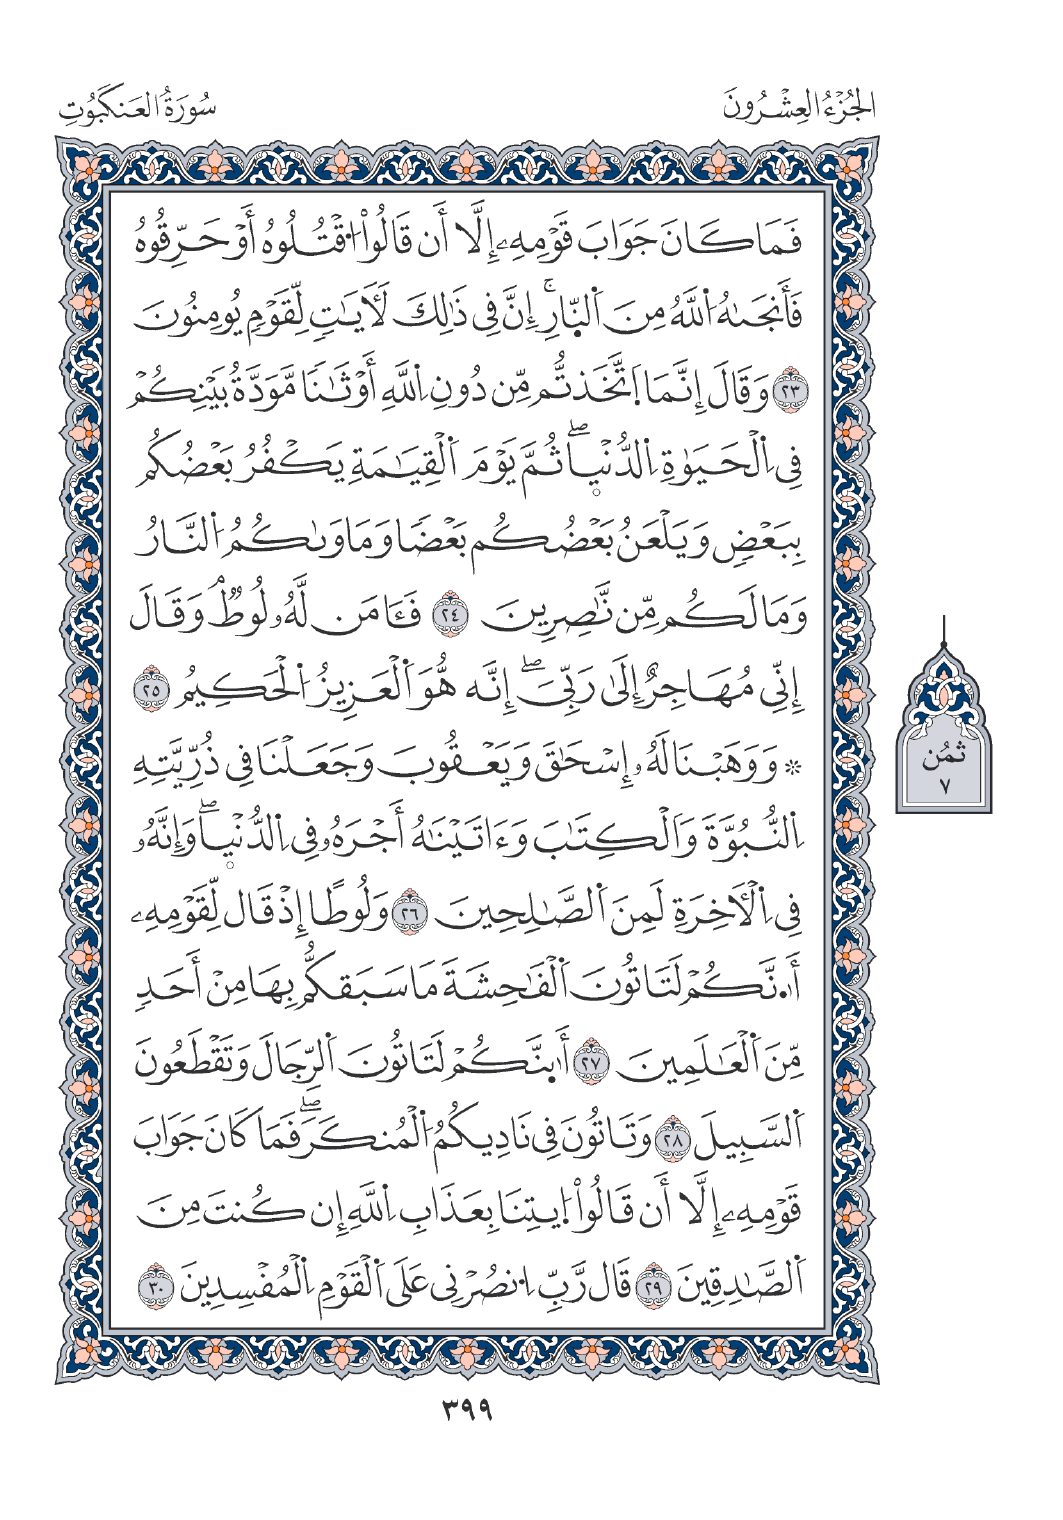 الجُزْءُ العِشْرُونَ
سُورَةُ العَنكَبُوتِ
فَمَا كَانَ جَوَابَ قَوْمِهِۦ إِلَّا أَن قَالُواْ اُ۟قْتُلُوهُ أَوْ حَرِّقُوهُ
فَأَنجَىٰهُ اُ۬للَّهُ مِنَ اَ۬لنّ۪ارِۚ إِنَّ فِي ذَٰلِكَ لَأٓيَٰتٖ لِّقَوْمٖ يُومِنُونَ
٢٣ وَقَالَ إِنَّمَا اَ۪تَّخَذتُّم مِّن دُونِ اِ۬للَّهِ أَوْثَٰنَا مَّوَدَّةُ بَيْنِكُمْ
فِي اِ۬لْحَيَوٰةِ اِ۬لدُّنْي۪اۖ ثُمَّ يَوْمَ اَ۬لْقِيَٰمَةِ يَكْفُرُ بَعْضُكُم
بِبَعْضٖ وَيَلْعَنُ بَعْضُكُم بَعْضٗا وَمَاوَىٰكُمُ اُ۬لنَّارُ
وَمَا لَكُم مِّن نَّٰصِرِينَ ٢٤ فَـَٔامَن لَّهُۥ لُوطٞۘ وَقَالَ
إِنِّي مُهَاجِرٌ إِلَىٰ رَبِّيَۖ إِنَّه هُّوَ اَ۬لْعَزِيزُ اُ۬لْحَكِيمُ ٢٥
۞ وَوَهَبْنَا لَهُۥ إِسْحَٰقَ وَيَعْقُوبَ وَجَعَلْنَا فِي ذُرِّيَّتِهِ
اِ۬لنُّبُوَّةَ وَاَ۬لْكِتَٰبَ وَءَاتَيْنَٰهُ أَجْرَهُۥ فِي اِ۬لدُّنْي۪اۖ وَإِنَّهُۥ
فِي اِ۬لْأٓخِرَةِ لَمِنَ اَ۬لصَّٰلِحِينَ ٢٦ وَلُوطًا إِذْ قَال لِّقَوْمِهِۦ
أَ۟نَّكُمْ لَتَاتُونَ اَ۬لْفَٰحِشَةَ مَا سَبَقكُّم بِهَا مِنْ أَحَدٖ
مِّنَ اَ۬لْعَٰلَمِينَ ٢٧ أَ۟ى۪نَّكُمْ لَتَاتُونَ اَ۬لرِّجَالَ وَتَقْطَعُونَ
اَ۬لسَّبِيلَ ٢٨ وَتَاتُونَ فِي نَادِيكُمُ اُ۬لْمُنكَرَۖ فَمَا كَانَ جَوَابَ
قَوْمِهِۦ إِلَّا أَن قَالُواْ اُ۪يتِنَا بِعَذَابِ اِ۬للَّهِ إِن كُنتَ مِنَ
اَ۬لصَّٰدِقِينَ ٢٩ قَال رَّبِّ اِ۟نصُرْنِي عَلَى اَ۬لْقَوْمِ اِ۬لْمُفْسِدِينَ ٣٠
ثمُن
٧
٣٩٩